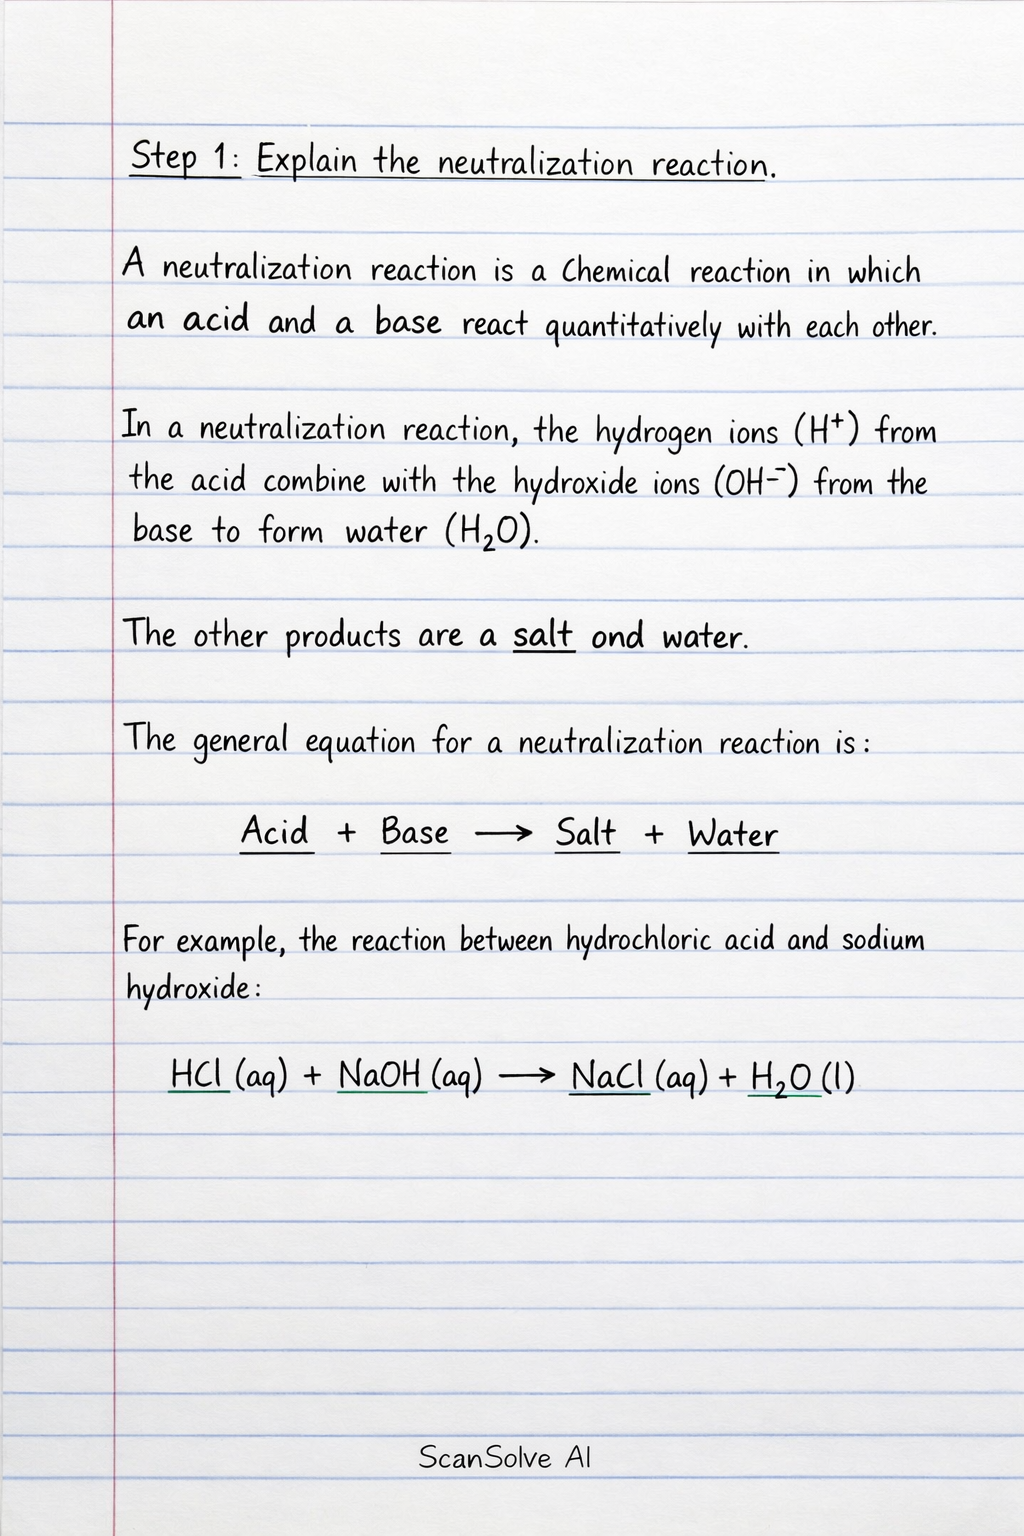 Step 1: Explain the neutralization reaction.
A neutralization reaction is a Chemical reaction in which
an acid and a base react quantitatively with each other.
In a neutralization reaction, the hydrogen ions (H⁺) from
the acid combine with the hydroxide ions (OH-⁻) from the
base to form water (H₂O).
The other products are a salt ond water.
The general equation for a neutralization reaction is:
Acid + Base → Salt + Water
For example, the reaction between hydrochloric acid and sodium
hydroxide:
HCl (aq) + NaOH (aq) → NaCl (aq) + H₂O (l)
ScanSolve AI